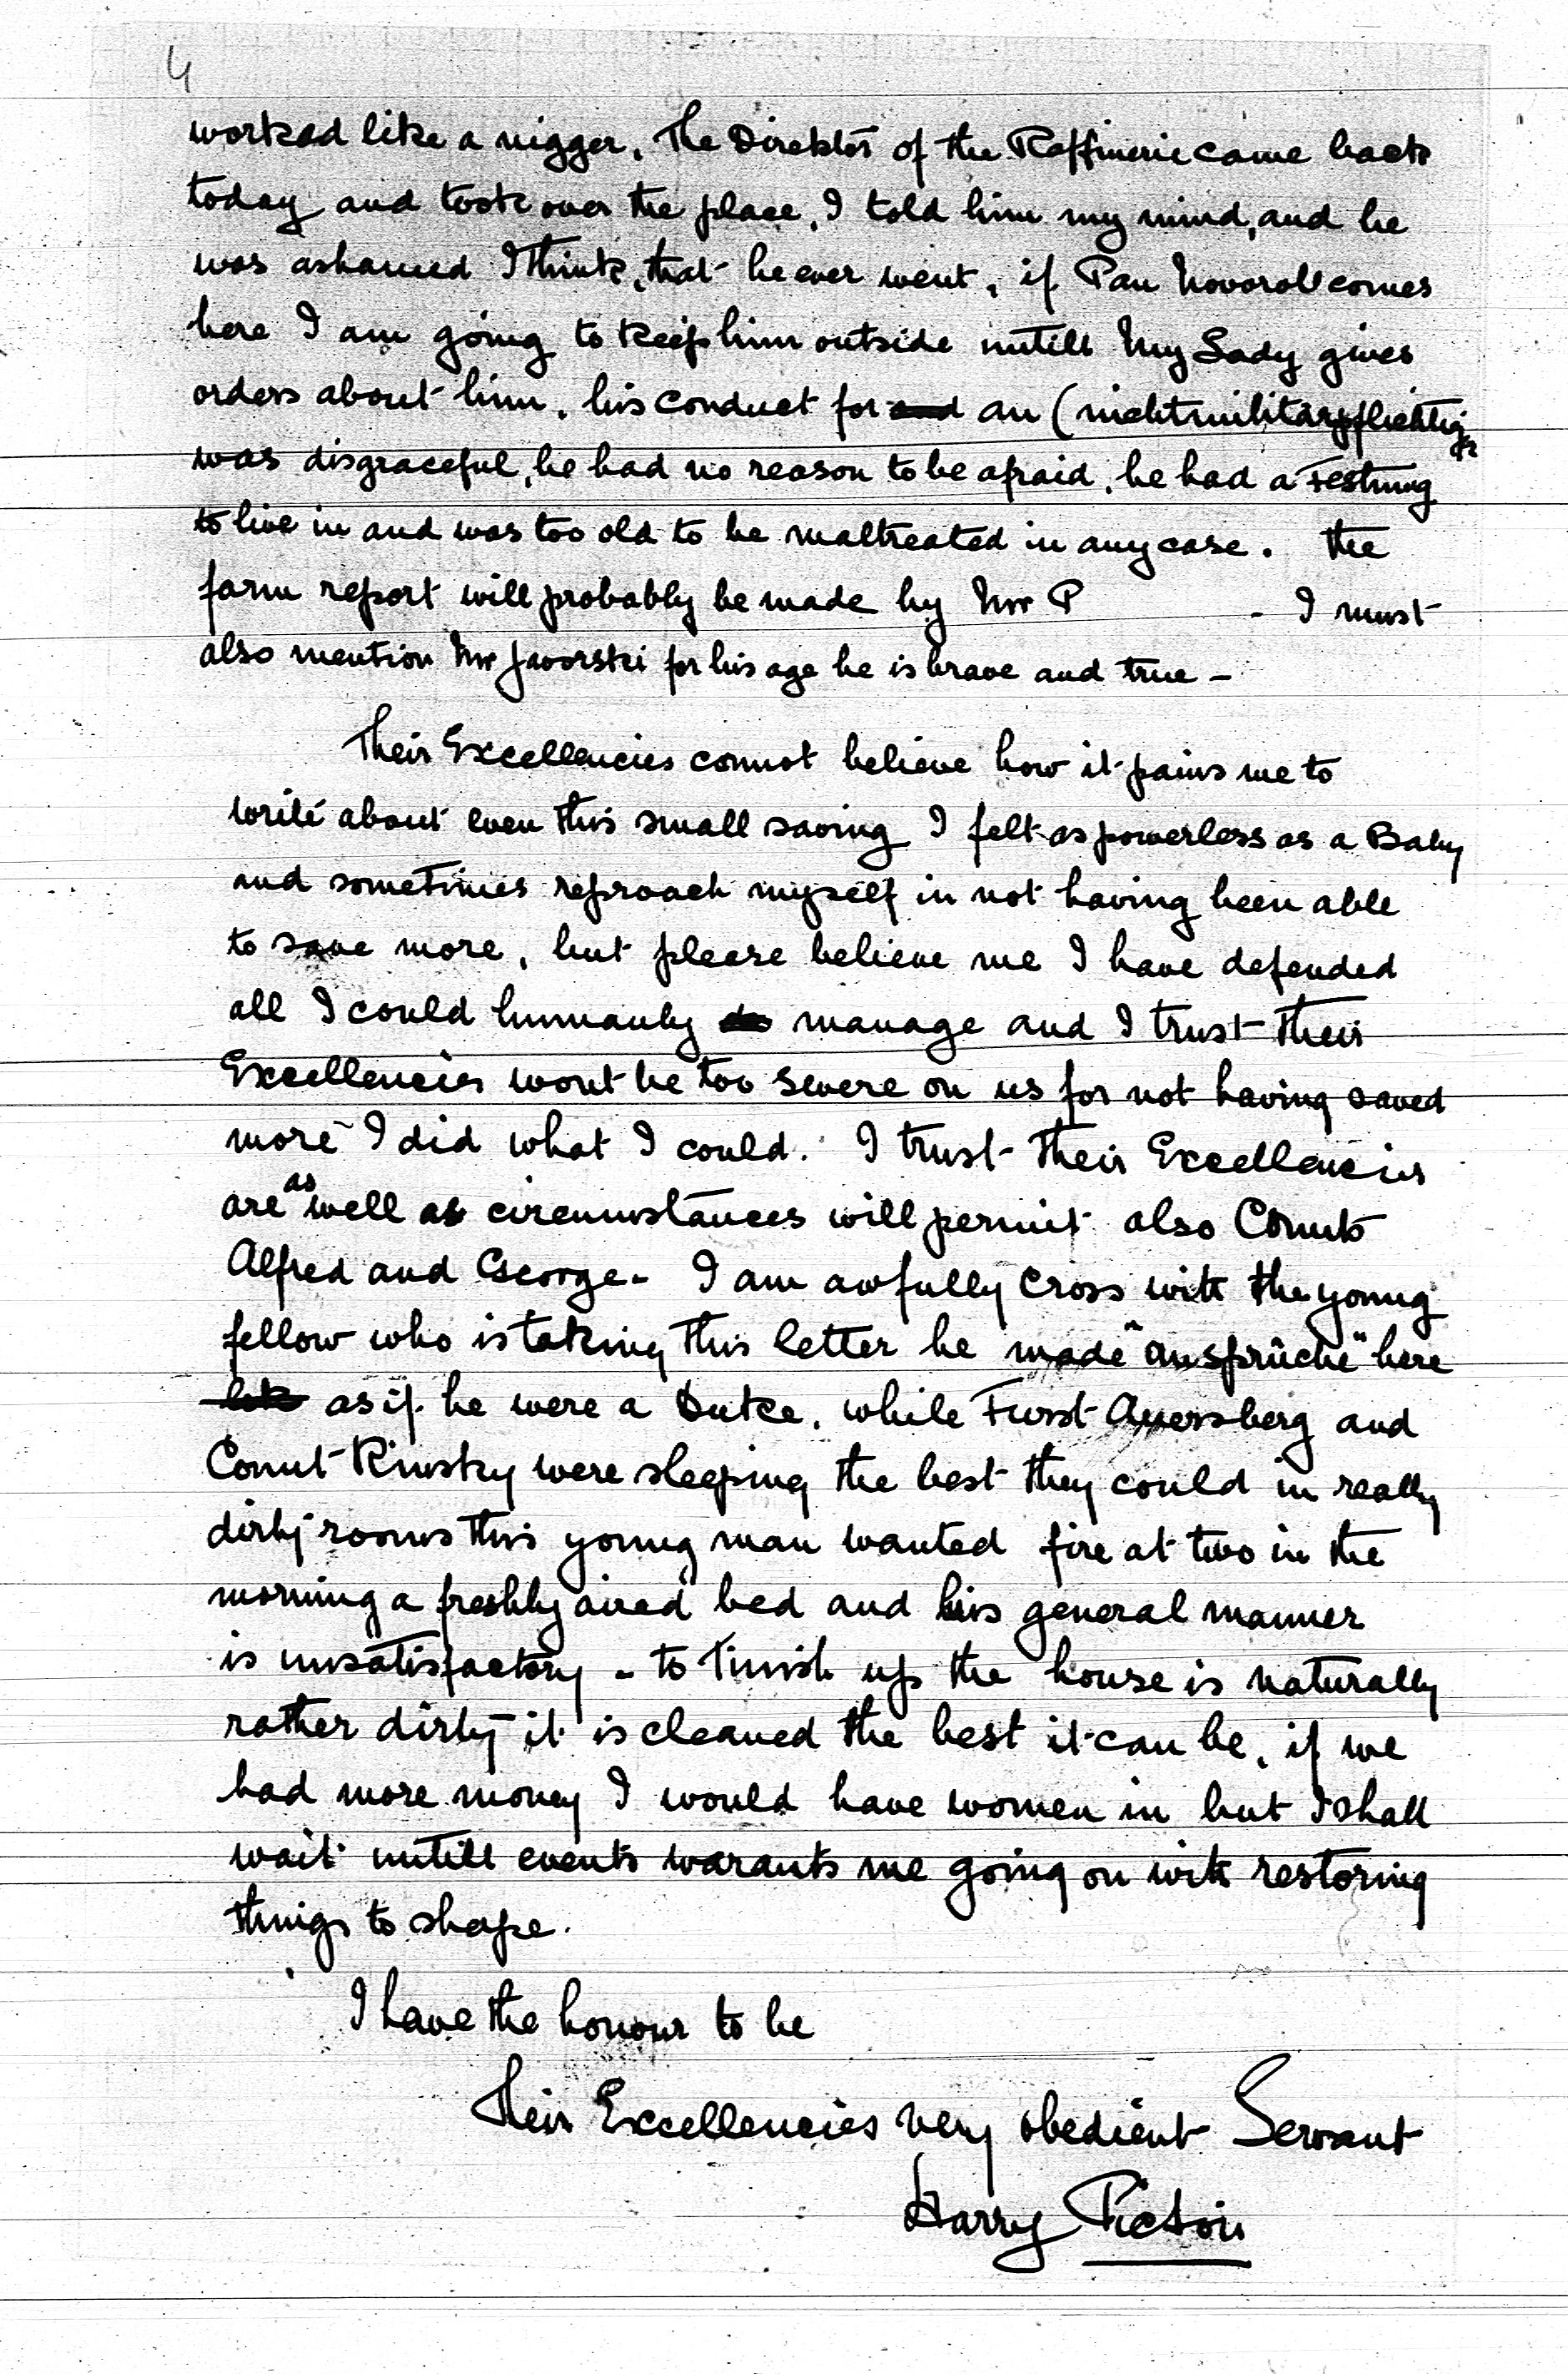 4
worked like a nigger. The Direktor of the Raffinerie came back
today and took over the place, I told him my mind, and he
was ashamed I think, that he ever went, if Pan comes
here I am going to keep him outside untill My Lady gives
orders about him, his conduct for an (nichtmilitärpflichtiger
was disgraceful, he had no reason to be afraid, he had a Festung
to live in and was too old to be maltreated in any case. the
farm report will probably be made by Mr P - I must
also mention Mr Jaworski for his age he is brave and true -
Their Excellencies cannot believe how it pains me to
write about even this small saving I felt as powerless as a Baby
and sometimes reproach myself in not having been able
to save more, but please believe me I have defended
all I could humanly manage and I trust their
Excellencies wont be too severe on us for not having saved
more I did what I could. I trust their Excellencies
are as well as circumstances will permit also Counts
Alfred and George. I am awfully cross with the young
fellow who is taking this letter he made "ansprüche" here
as if he were a Duke, while Furst Auersberg and
Count Kinsky were sleeping the best they could in really
dirty rooms this young man wanted fire at two in the
morning a freshly aired bed and his general manner
is unsatisfactory - to finish up the house is naturally
rather dirty it is cleaned the best it can be, if we
had more money I would have women in but I shall
wait untill events warants me going on with restoring
things to shape.
I have the honour to be
Their Excellencies very obedient Servant
Harry Picton